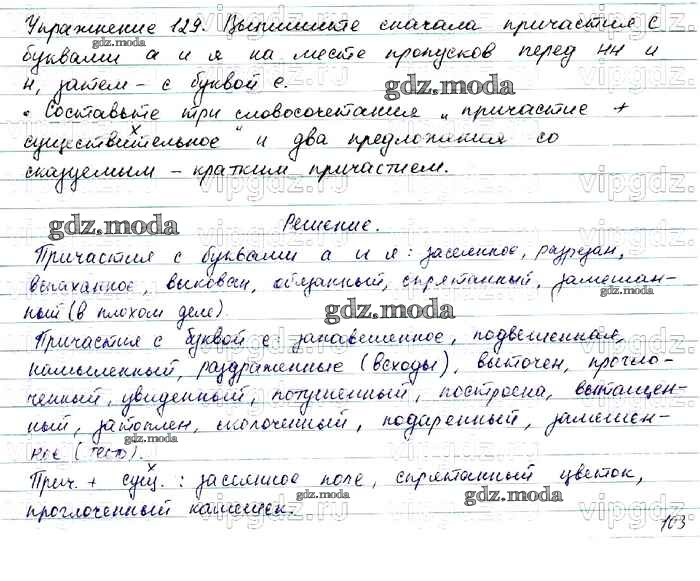 Упражнение 129. Выпишите сначала причастия с
буквами а и я на месте пропусков перед нн и
н, затем – с буквой е.
• Составьте три словосочетания „причастие +
существительное" и два предложения со
сказуемым – кратким причастием.
Решение.
Причастия с буквами а и я: засеянное, разрезан,
вспаханное, выкован, обязанный, спрятанный, замешан-
ный (в плохом деле).
Причастия с буквой е: занавешенное, подвешенная,
намыленный, раздраженные (всходы), выточен, прогло-
ченный, увиденный, потушенный, построена, вытащен-
ный, затоплен, сколоченный, подаренный, замешен-
ное (тесто).
Прич. + сущ. : засеянное поле, спрятанный цветок,
проглоченный камешек.
163
gdz.moda
vipgdz.ru